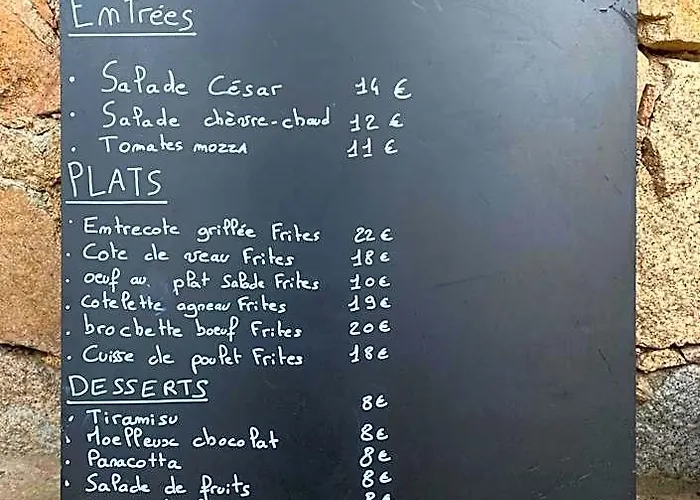 Entrées
· Salade César 14 €
· Salade chèvre-chaud 12 €
· Tomates mozza 11 €
PLATS
· Entrecote grillée Frites 22 €
· Cote de veau Frites 18 €
· oeuf au plat Salade Frites 10 €
· Cotelette agneau Frites 19 €
· brochette boeuf Frites 20 €
· Cuisse de poulet Frites 18 €
DESSERTS
· Tiramisu 8 €
· Moelleux chocolat 8 €
· Panacotta 8 €
· Salade de fruits 8 €
8 €